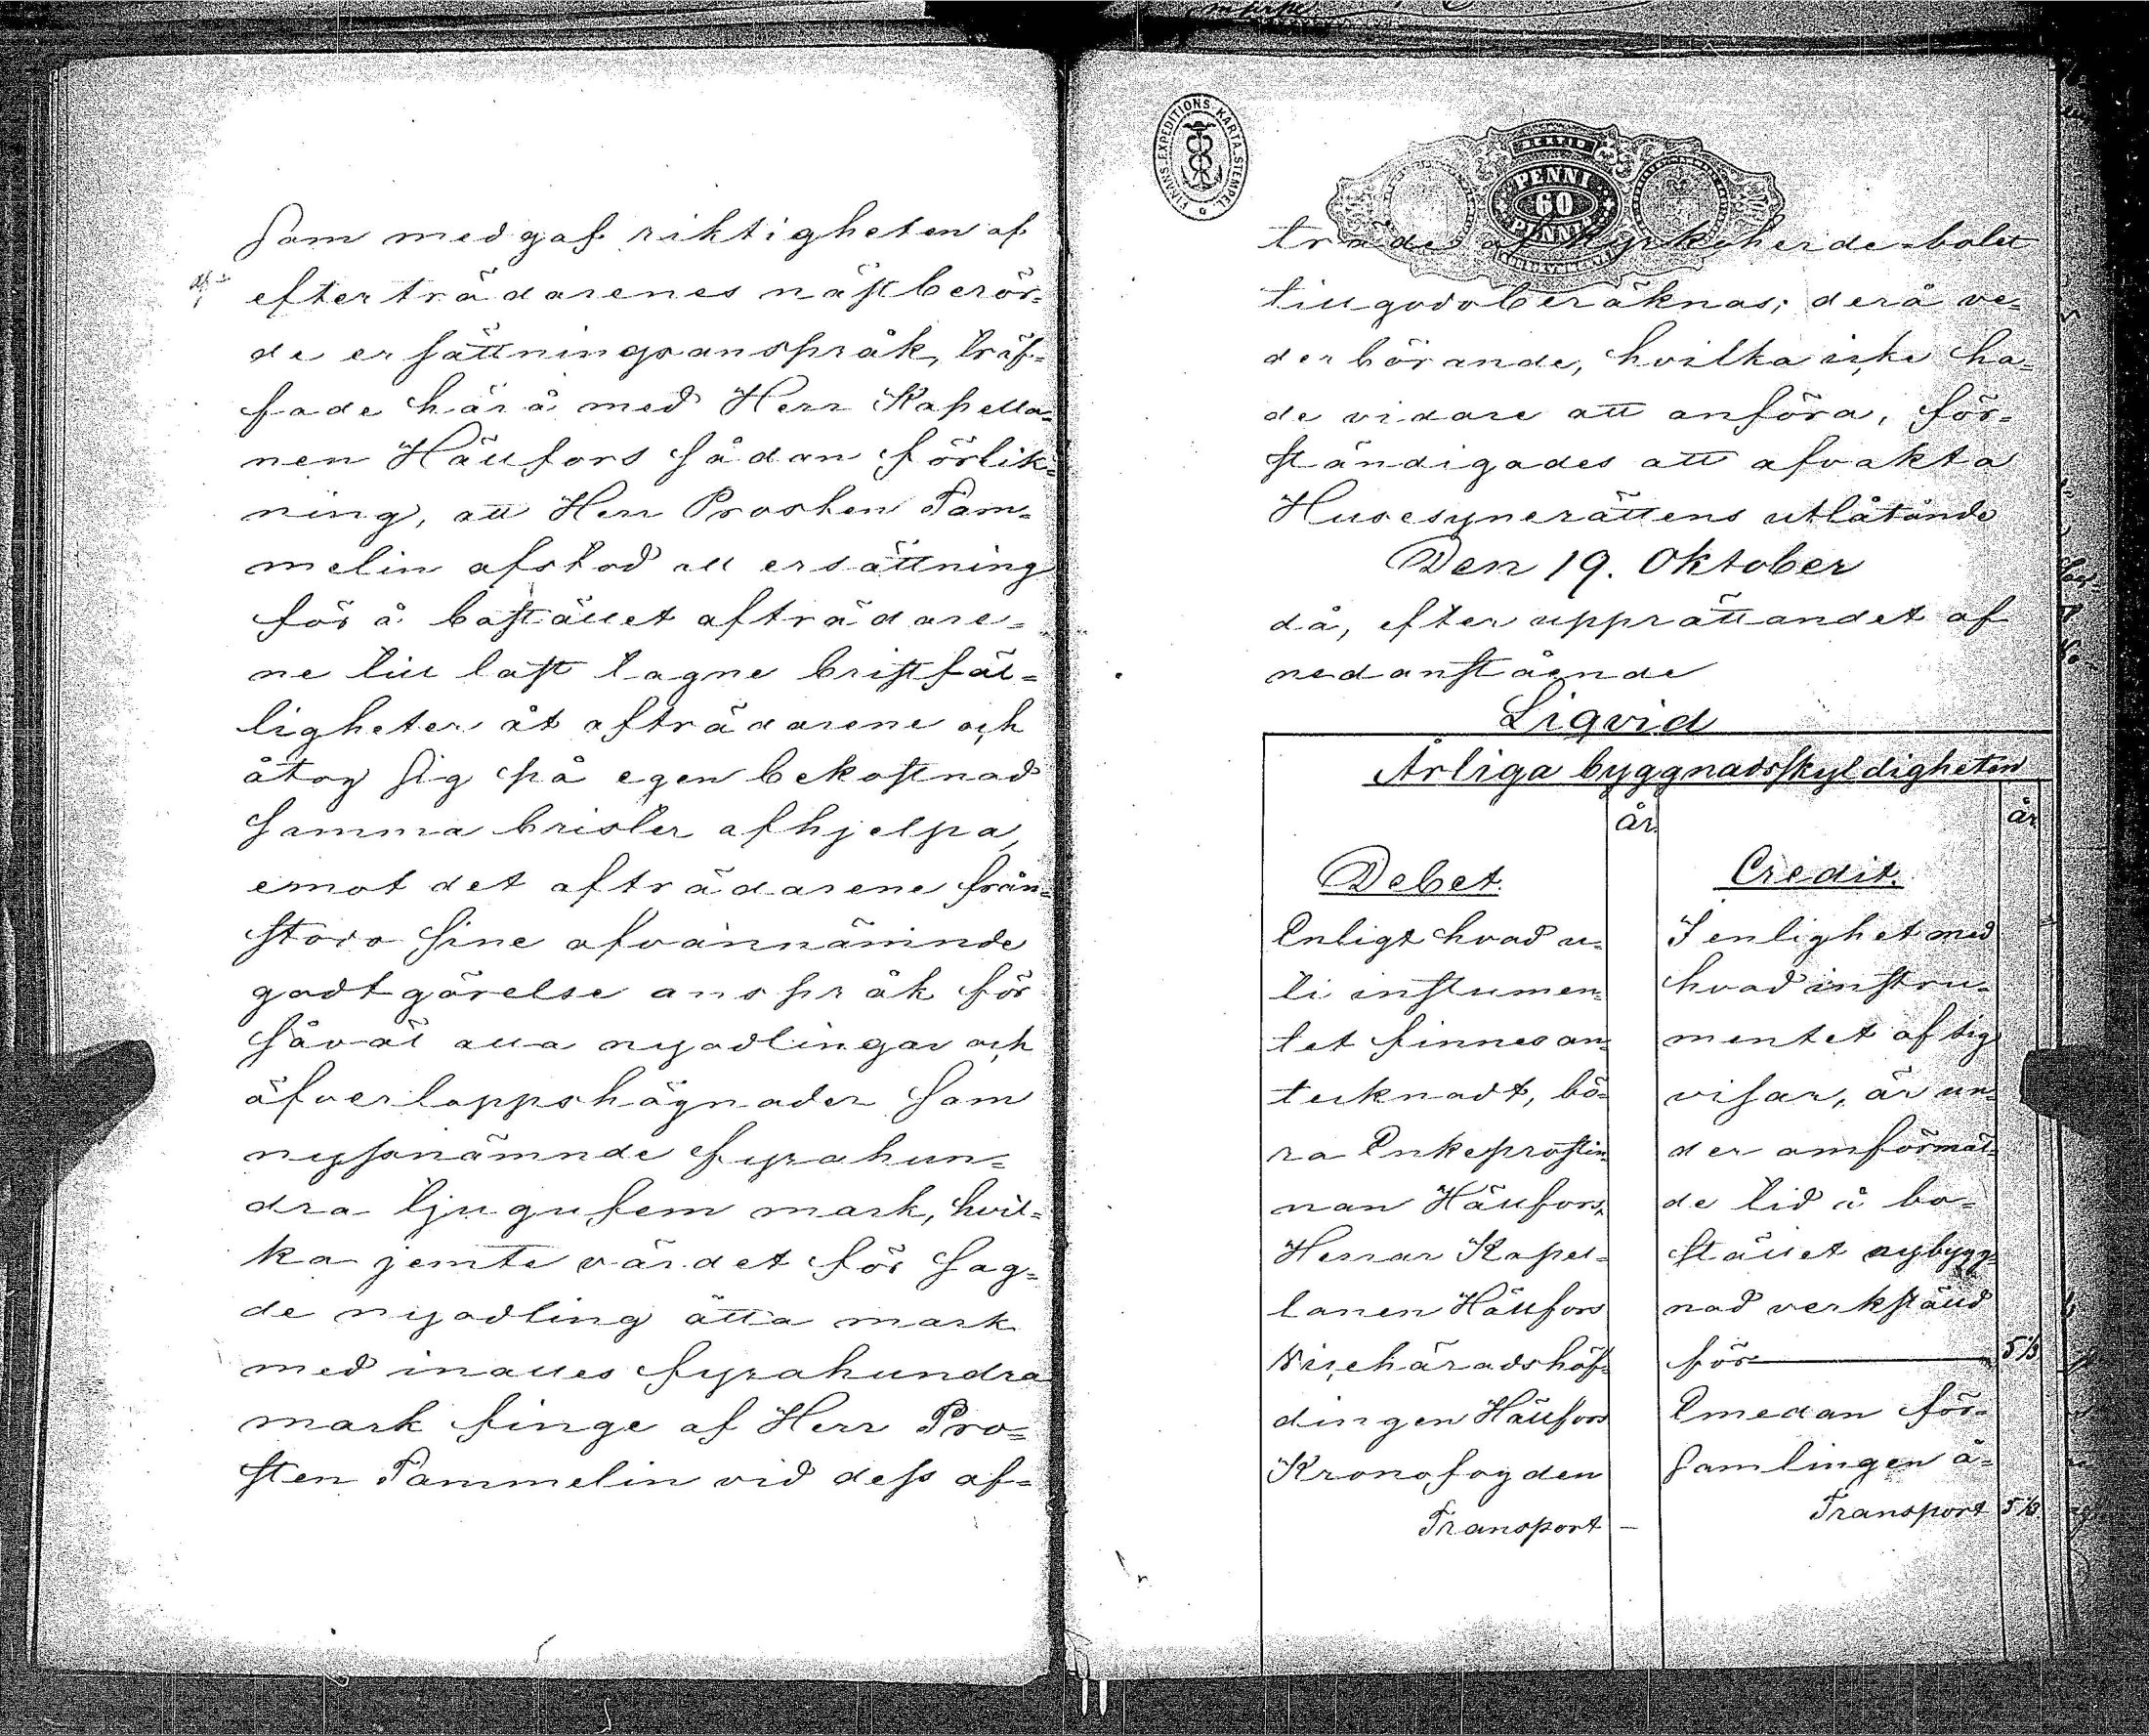 som medgaf riktigheten af
efterträdarenes näst berör-
de ersättningsanspråk, träf-
fade härå med Herr Kapella-
nen Hällfors sådan förlik-
ning, att Herr Prosten Tam-
melin afstod all ersättning
för å bostället afträdare-
ne till last lagne bristfäl-
ligheter åt afträdarene och
åtog sig på egen bekostnad
samma brister afhjelpa,
emot det afträdarene från-
stodo sine ofvannämnde
godtgörelse anspråk för
såväl alla nyodlingar och
öfverloppshägnader som
nyssnämnde fyrahun-
dra tjugufem mark, hvil-
ka jemte värdet för sag-
de nyodling åtta mark
med inalles fyrahundra
mark finge af Herr Pro-
sten Tammelin vid dess af-
FINANS.EXPEDITIONS.KARTA.STEMPEL
PENNI
60
PENNI
träde af kyrkoherdebolet
tillgodoberäknas; derå ve-
derbörande, hvilka icke ha-
de vidare att anföra, för-
ständigades att afvakta
Husesynerättens utlåtande
Den 19. Oktober
då, efter upprättandet af
nedanstående
Liqvid
Årliga byggnadsskyldigheten
år.
år
Debet.
Enligt hvad u-
ti instumen-
tet finnes an-
tecknadt, bö-
ra Enkeprostin-
nan Hällfors,
Herrar Kapel-
lanen Hällfors
Vicehäradshöf-
dingen Hällfors
Kronofogden
Transport –
Credit.
I enlighet med
hvad instru-
mentet af sig
visar, är un-
der omförmäl-
de tid å bo-
stället nybygg-
nad verkställd
för 5 1/3
Emedan för-
samlingen å-
Transport 5 1/3